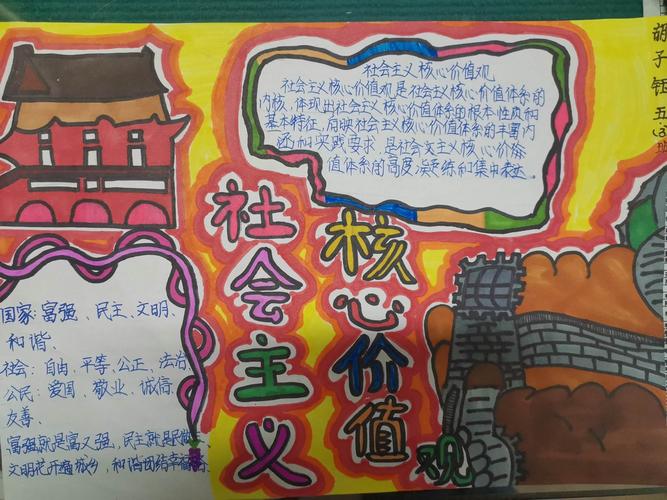 胡子钰五(3)班
社会主义核心价值观
社会主义核心价值观是社会主义核心价值体系的
内核，体现出社会主义核心价值体系的根本性质和
基本特征，反映社会主义核心价值体系的丰富内
涵和实践要求，是社会交主义核心价
值体系的高度凝练和集中表达。
社会主义
核心价值观
国家：富强、民主、文明、
和谐
社会：自由、平等、公正、法治
公民：爱国、敬业、诚信、
友善、
富强就是富又强，民主就是民
文明花开遍城乡，和谐团结幸福